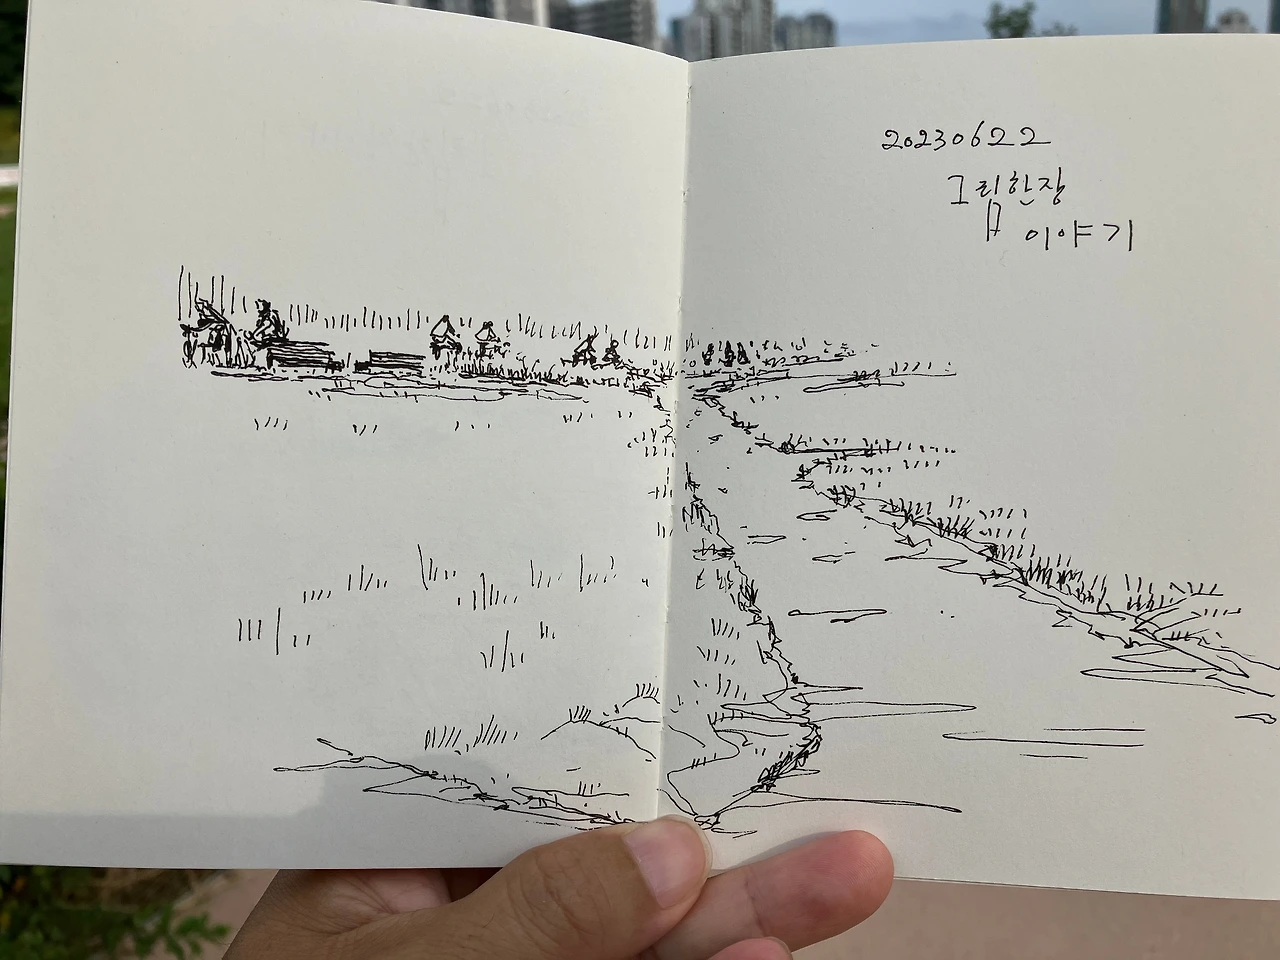 20230622
그림한장
이야기